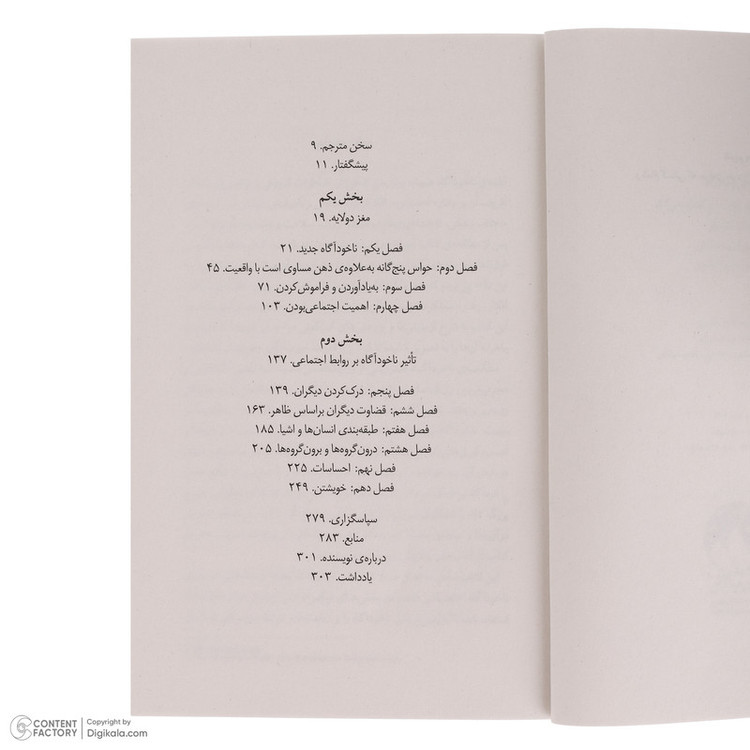 سخن مترجم. ۹
پیشگفتار. ۱۱
بخش یکم
مغز دولایه. ۱۹
فصل یکم: ناخودآگاه جدید. ۲۱
فصل دوم: حواس پنج‌گانه به‌علاوه‌ی ذهن مساوی است با واقعیت. ۴۵
فصل سوم: به‌یادآوردن و فراموش‌کردن. ۷۱
فصل چهارم: اهمیت اجتماعی‌بودن. ۱۰۳
بخش دوم
تأثیر ناخودآگاه بر روابط اجتماعی. ۱۳۷
فصل پنجم: درک‌کردن دیگران. ۱۳۹
فصل ششم: قضاوت دیگران براساس ظاهر. ۱۶۳
فصل هفتم: طبقه‌بندی انسان‌ها و اشیا. ۱۸۵
فصل هشتم: درون‌گروه‌ها و برون‌گروه‌ها. ۲۰۵
فصل نهم: احساسات. ۲۲۵
فصل دهم: خویشتن. ۲۴۹
سپاسگزاری. ۲۷۹
منابع. ۲۸۳
درباره‌ی نویسنده. ۳۰۱
یادداشت. ۳۰۳
CONTENT FACTORY
Copyright by
Digikala.com